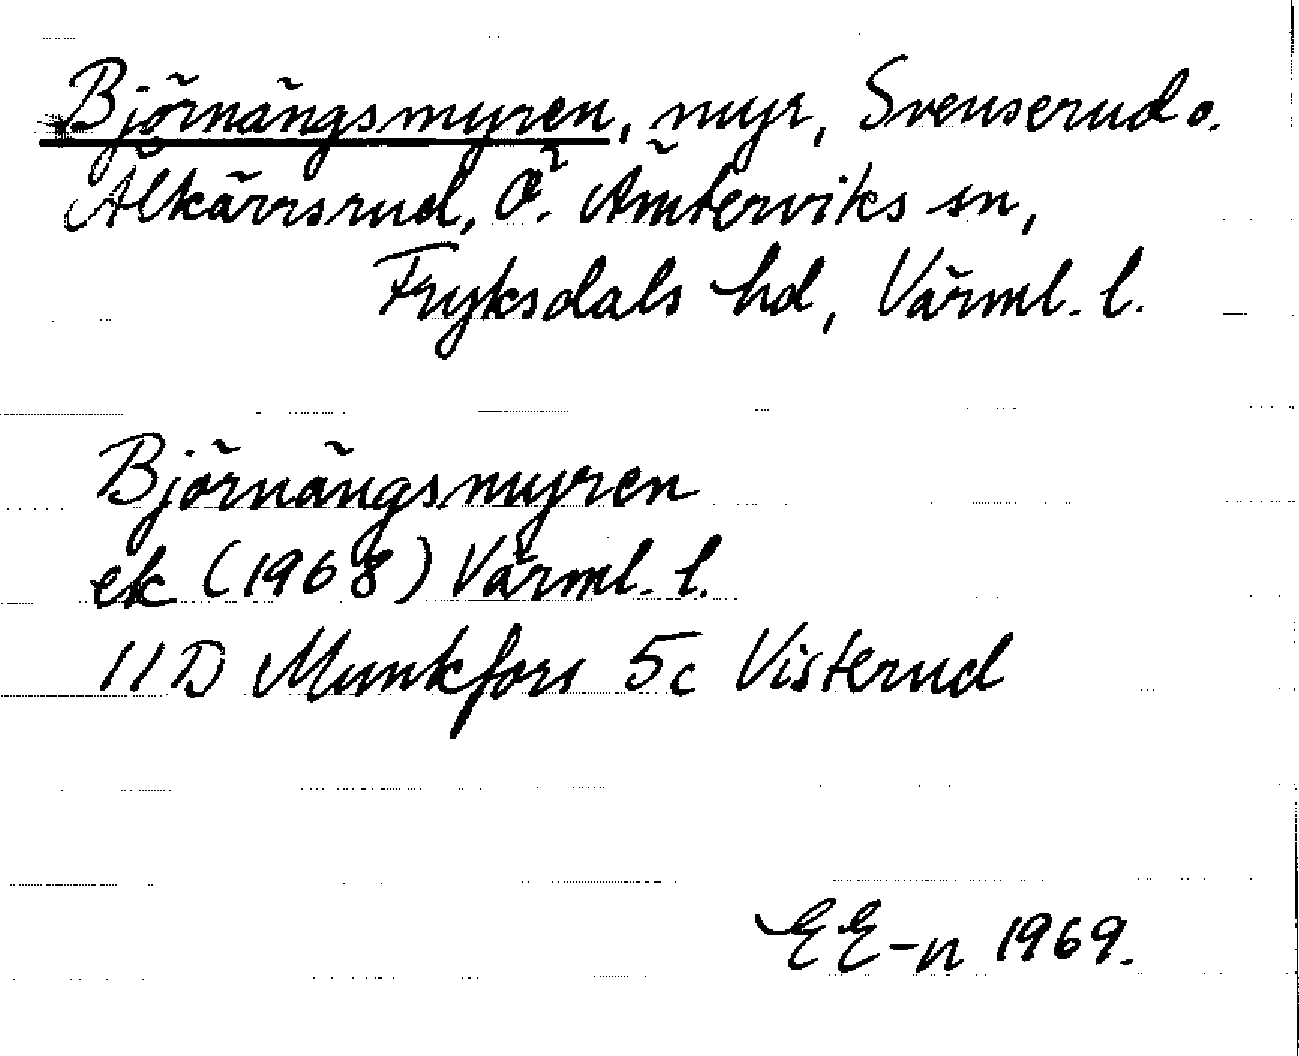 Björnängsmyren, myr, Svenserud o.
Älkärrsrud, Ö. Ämterviks sn,
Fryksdals hd, Värml. l.
Björnängsmyren
ek (1968) Värml. l.
11D Munkfors 5c Visterud
EE-n 1969.